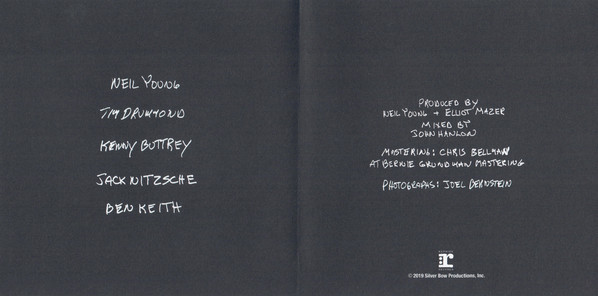 NEIL YOUNG
TIM DRUMMOND
KENNY BUTTREY
JACK NITZSCHE
BEN KEITH
PRODUCED BY
NEIL YOUNG + ELLIOT MAZER
MIXED BY
JOHN HANLON
MASTERING: CHRIS BELLMAN
AT BERNIE GRUNDMAN MASTERING
PHOTOGRAPHS: JOEL BERNSTEIN
r
© 2019 Silver Bow Productions, Inc.